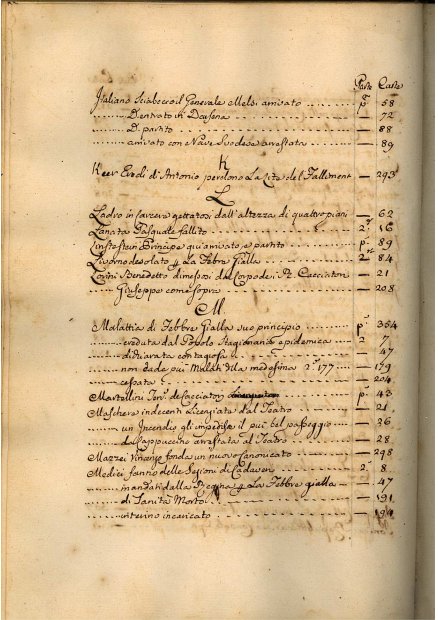 Parte Carte
Italiano Sciabecco il Generale Melsi arrivato p.ª 58
Dentrato in Darsena — 72
D. partito — 88
arrivato con Nave Svedese arrestata — 89
K
Keer Eredi di Antonio perdono La Lite del Falliment — 293
L
Ladro in Carcere gettatosi dall'altezza di quattro piani — 62
Lanata Pasquale fallito 2.ª 86
Principe qui arrivato, e partito p. 89
Livorno desolato La Febre Gialla 2.ª 84
Benedetto dimessosi dal Corpo de i Cacciatori — 21
Giuseppe come sopra — 208
M
Malattia di Febbre Gialla suo principio p.ª 354
creduta dal Popolo Stagionante epidemica 2 7
dichiarata contagiosa — 47
non cade più Malati di la medesima 2.ª 177 — 179
cessata — 204
Martellini Ten. de Cacciatori p. 43
Maschere indecenti Licenziate dal Teatro — 21
un Incendio gli impedisce il più bel passeggio — 26
di Cappuccino arrestata al Teatro — 28
Mazzei Vincenzo fonda un nuovo Canonicato — 298
Medici fanno delle Sezioni di Cadaveri 2.ª 8
mandati dalla Regina La Febbre gialla — 47
di Sanità Morto — 191
interino incaricato — 194